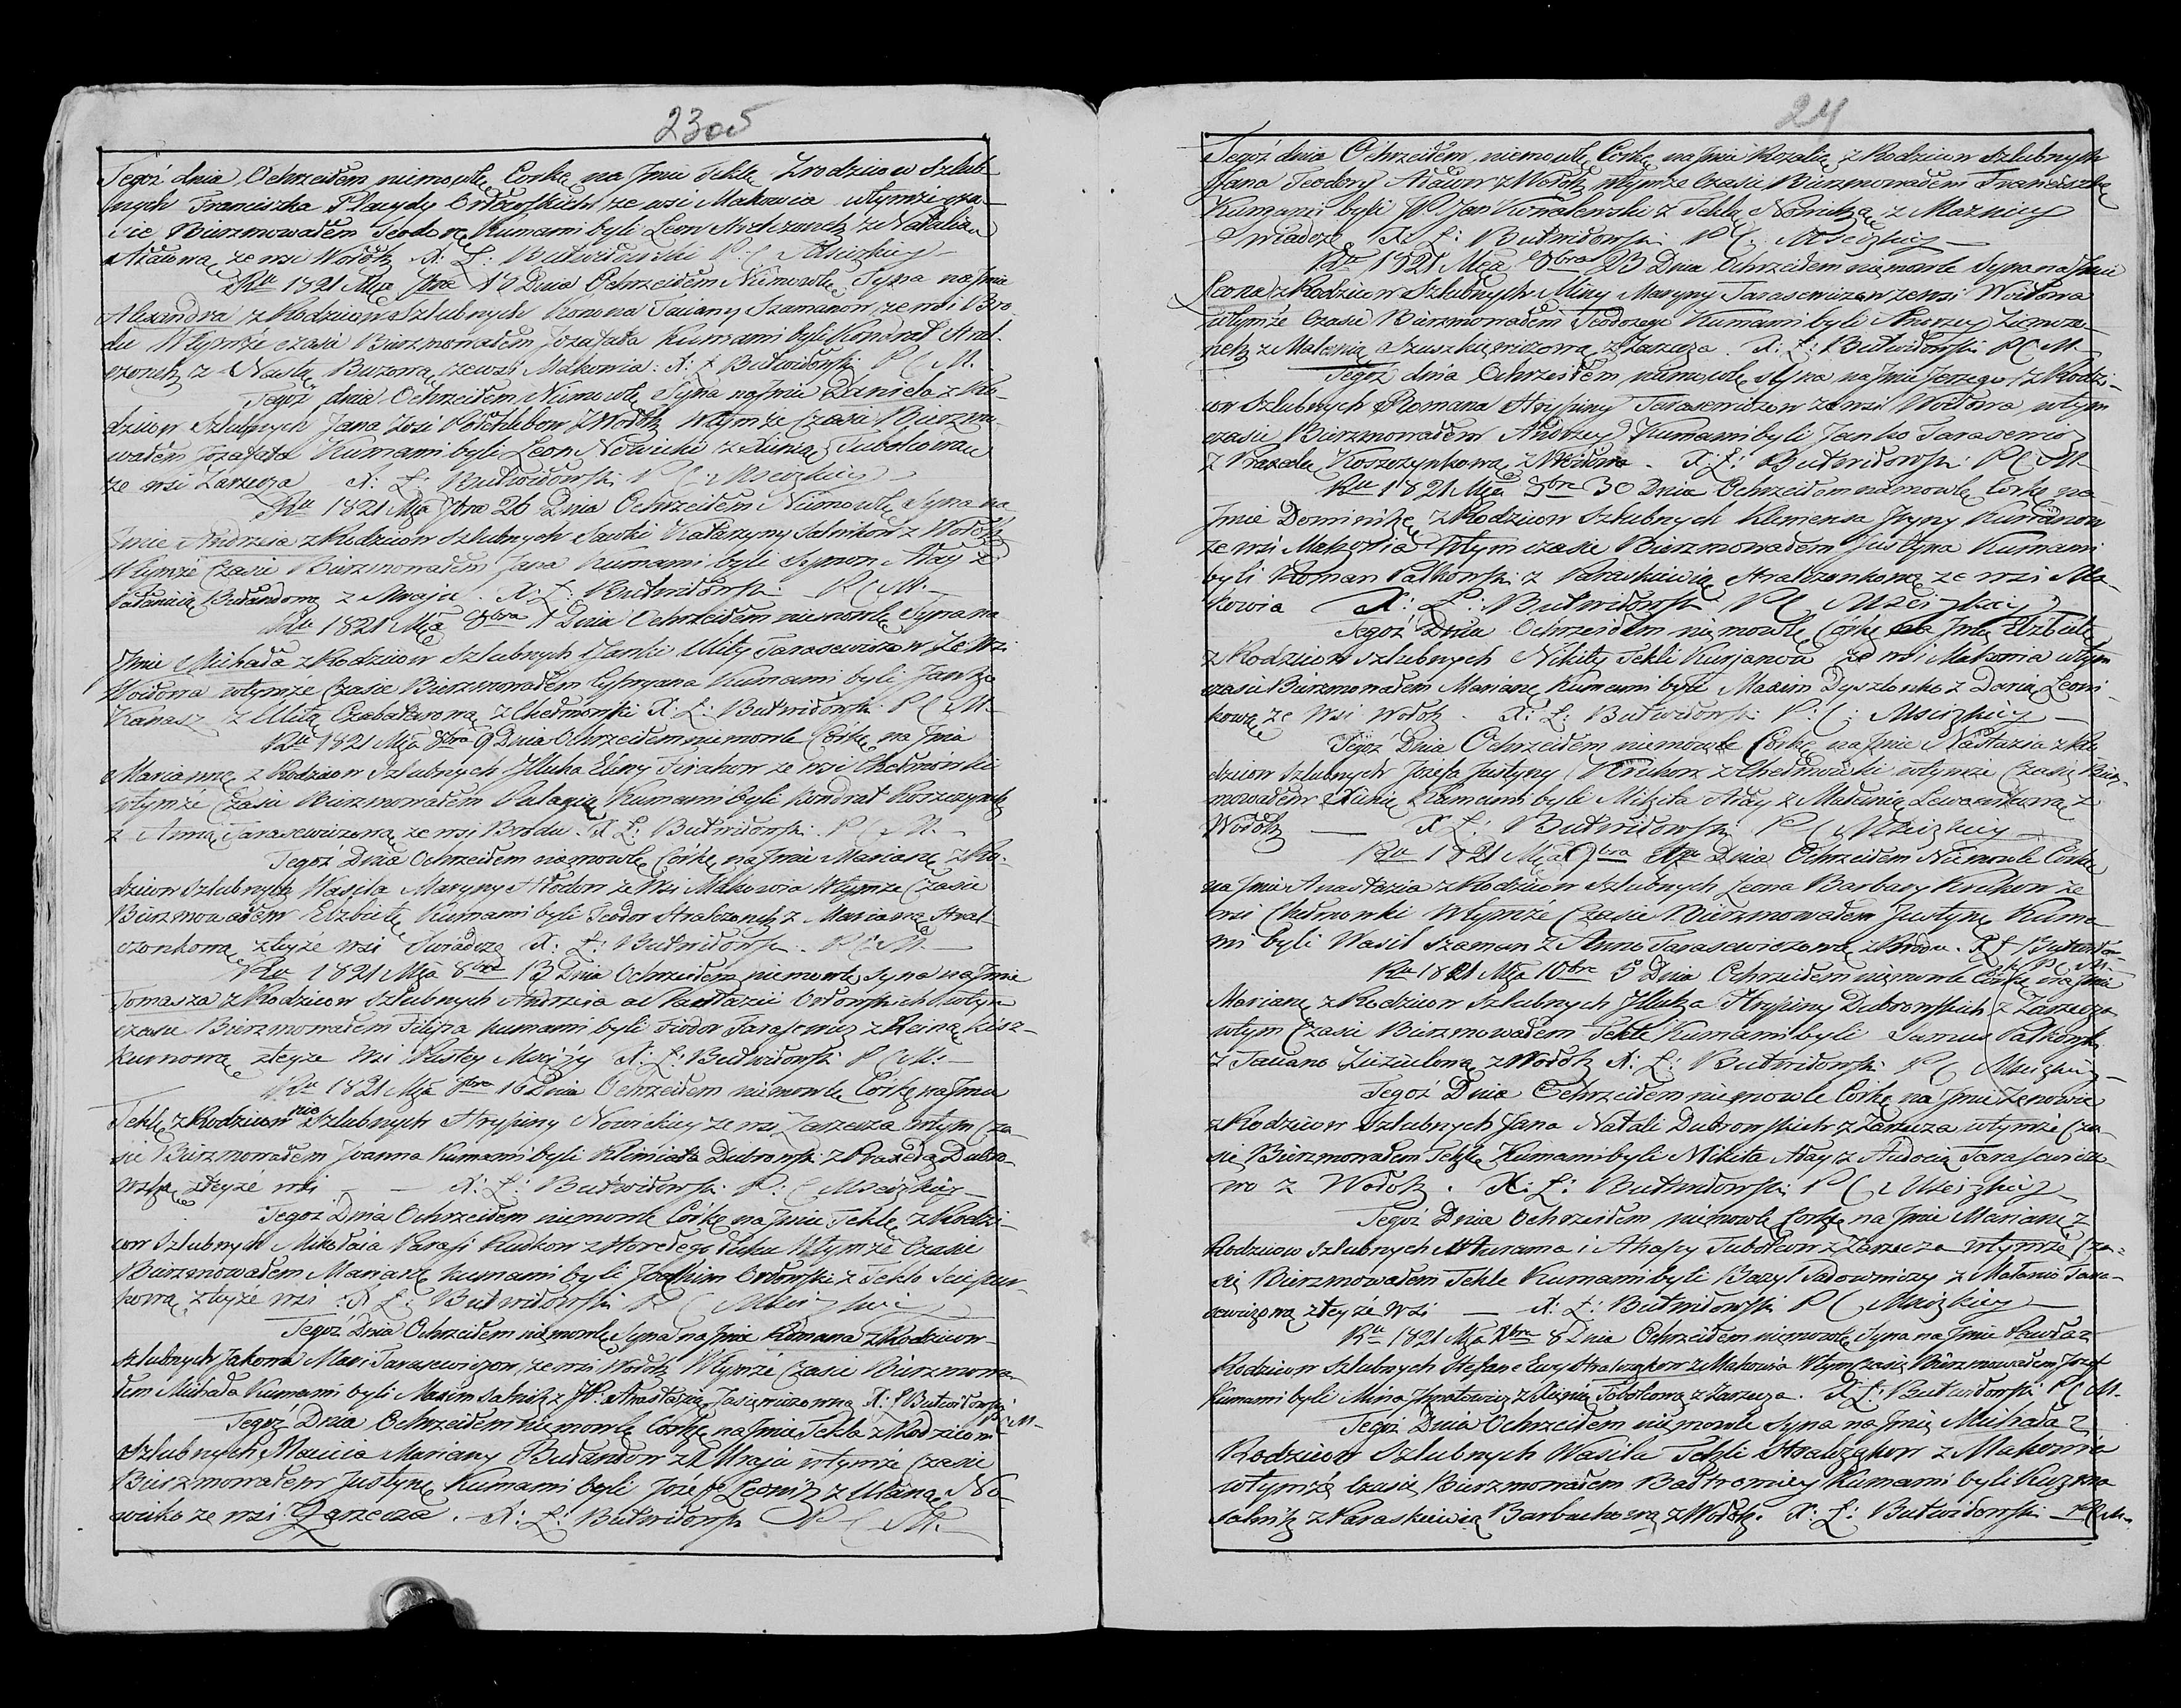 23 об
Tegóż dnia Ochrzciłem niemowlę Corkę na Jmie Teklę z rodzicow Szlub-
nych Franciszka Placydy Orłowskich ze wsi Makowia wtymże cza-
sie Bierzmowałem Teodorę Kumami byli Leon Stralczonek z Natalią
Adaiową ze wsi Wołotk X: L: Butwiłowski P: C Mscizkiey
Ru 1821 Mca 7bra 17 Dnia Ochrzciłem Niemowlę Syna na Jmie
Alexandra z Rodzicow Szlubnych Konona Taciany Szamanow ze wsi Bro-
du Wtymże czasie Bierzmowałem Jozafata Kumami byli Kondrat Stral-
czonek z Nastą Buzową ze wsi Makowia: X: L Butwiłowski P C M.
Tegóż dnia Ochrzciłem Niemowlę Syna na Jmie Daniela z Ro-
dzicow Szlubnych Jana Zosi Połchlebow z Wołotk Wtymże Czasie Bierzmo-
wałem Jozafata Kumami byli Leon Nowicki z Xienią Tubolcową
ze wsi Zarzecza X: L: Butwiłowski P C: Mscizkiey
Ru 1821 Mca 7bra 26 Dnia Ochrzciłem Niemowlę Syna na
Jmie Andrzeia z Rodzicow Szlubnych Sawki Katarzyny Salnikow z Wołotk
Wtymże Czasie Bierzmowałem Jana Kumami byli Symon Aday z
Pałanieią Bułankową z Mraju. X: L: Butwiłowski P C M.
Ru 1821 Mca 8bra 1 Dnia Ochrzciłem niemowlę Syna na
Jmie Michała z Rodzicow Szlubnych Janki Ulity Tarasewiczow ze Wsi
Woiłowa wtymże Czasie Bierzmowałem Cypryana Kumami byli Janko
Kanasz z Ulitą Czabatarową z Chełmowki X: L: Butwiłowski P C M
Ru 1821 Mca 8bra 9 Dnia Ochrzciłem niemowle Córkę na Jmie
Mariannę z Rodzicow Szlubnych Jlluka Eleny Firahow ze wsi Chełmowki
wtymże Czasie Bierzmowałem Pałagią Kumami byli Kondrat Koszczynek
z Anną Tarasewiczową ze wsi Brodu. X L: Butwiłowski. P C M.
Tegóż Dnia Ochrzciłem niemowlę Córkę na Jmie Mariannę z Ro-
dzicow Szlubnych Wasila Maryny Hłodow ze Wsi Makowia Wtymże Czasie
Bierzmowałem Elzbietę Kumami byli Teodor Stralczonek z Marianną Stral-
czonkową zteyże wsi Swiadczę X: L: Butwiłowski. P C M
Ru 1821 Mca 8bra 13 Dnia Ochrzciłem niemowlę syna na Jmie
Tomasza z Rodzicow Szlubnych Andrzeia Nastazii Orłowskich wtym
czasie Bierzmowałem Filipa kumami byli Fiodor Tarasewicz z Reiną Kisz-
kurnową zteyże Wsi Pustey Mscizy X: L: Butwiłowski P C M:
Ru 1821 Mca 8bra 16 Dnia Ochrzciłem niemowle Córkę na Jmie
Teklę z Rodzicow nie Szlubnych Hrypiny Nowickiey ze wsi Zarzecza wtym cza-
sie Bierzmowałem Joanna Kumami byli Klimiata Dubrowski z Praxedą Dubro-
wską zteyże wsi X: L: Butwiłowski P: C Mscizkiey
Tegoż Dnia Ochrzciłem niemowle Córkę na Jmie Teklę z Rodzi-
cow Szlubnych Mikołaia Parasi Rudkow z Horełego Ługu Wtymże Czasie
Bierzmowałem Mariannę kumami byli Joachim Orłowski z Teklą
kową zteyże wsi X L: Butwiłowski P C Mscizkiey
Tegoż Dnia Ochrzciłem niemowlę Syna na Jmie Romana z Rodzicow
Szlubnych Jakowa Mari Tarasewiczow ze wsi Wołotk Wtymże Czasie Bierzmowa-
łem Michała Kumami byli Maxim Salnik z JP. Anastazią Jasiewiczowną X: L Butwiłowski
P C M
Tegóż Dnia Ochrzciłem niemowlę Corkę na Jmie Tekla z Rodzicow
Szlubnych Macieia Marianny Bułankow z Mraju wtymże Czasie
Bierzmowałem Justynę Kumami byli Józef Leonik z Ulaną No-
wicką ze wsi Zarzecza. X: L: Butwiłowski P C M.
24
Tegoż dnia Ochrzciłem niemowlę Corkę na Jmie Rozalię z Rodzicow Szlubnych
Jana Teodory Adaiow z Wołotk wtymże Czasie Bierzmowałem Franciszkę
Kumami byli JP. Jan Kowalewski z Teklą Nowicką z Mazniey
Swiadczę X: L: Butwiłowski P C: Mscizkiey
Ru 1821 Mca 8bra 23 Dnia Ochrzciłem niemowle Syna na Jmie
Leona z Rodzicow Szlubnych Miny Maryny Tarasewiczow ze wsi Woiłowa
wtymże Czasie Bierzmowałem Teodozego Kumami byli Andrzey
nek z Malanią Szuszkiewiczową z Zarzecza. X: L: Butwiłowski P C M
Tegoż dnia Ochrzciłem niemowlę Syna na Jmie Jerzego z Rodzi-
cow Szlubnych Romana Hrypiny Tarasewiczow ze wsi Woiłowa wtym
czasie Bierzmowałem Andrzey Kumami byli Janko Tarasewicz
z Praxedą Koszczynkową z Woiłowa. X: L: Butwiłowski P C M
Ru 1821 Mca 8bra 30 Dnia Ochrzciłem niemowlę Corkę na
Jmie Dominikę z Rodzicow Szlubnych Klemensa Jryny Kurianow
ze wsi Makowia Wtym czasie Bierzmowałem Justyna Kumami
byli Roman Palkowski z Paraskiewią Stralczonkową ze wsi Ma-
kowia X: L: Butwiłowski P C Mscizkiey
Tegoż Dnia Ochrzciłem niemowlę Córkę na Jmię Elzbietę
z Rodzicow Szlubnych Nikity Tekli Kurjanow ze wsi Makowia wtym
czasie Bierzmowałem Mariannę Kumami byli Maxim Dyszlonko z Darią Leoni-
kową ze Wsi Wołotk. X: L: Butwiłowski P: C: Mscizkiey
Tegoż Dnia Ochrzciłem niemowle Córkę na Jmie Nastazia z Ro-
dzicow Szlubnych Jozefa Justyny Krukow z Chełmowki wtymże Czasie Bierz-
mowałem Xienię Kumami byli Mikita Aday z Malanią Lewantową z
Wołotk X L: Butwiłowski P C Mscizkiey
Ru 1821 Mca 9bra Dnia Ochrzciłem Niemowle Corkę
na Jmie Anastazia z Rodzicow Szlubnych Leona Barbary Krukow ze
wsi Chełmowki Wtymże Czasie Bierzmowałem Justynę Kuma-
mi byli Wasil Szaman z Anną Tarasewiczową z Brodu. X L Butwiłow-
ski P C M
Ru 1821 Mca 10bra 5 Dnia Ochrzciłem niemowle Córkę na Jmie
Mariannę z Rodzicow Szlubnych Jlluka Hrypiny Dubrowskich z Zarzecza
wtym Czasie Bierzmowałem Teklę Kumami byli Samus Palkowski
z Tacianą Ziuziulową z Wołotk X: L: Butwiłowski P C Mscizkiey
Tegoż Dnia Ochrzciłem niemowle Córkę na Jmie Zenowia
z Rodzicow Szlubnych Jana Natali Dubrowskich z Zarzecza wtymże Cza-
się Bierzmowałem Teklę Kumami byli Mikita Aday z Audocią Tarasewiczo-
wo z Wołotk. X: L: Butwiłowski P C Mscizkiey
Tegoż Dnia Ochrzciłem niemowlę Corkę na Jmie Mariannę z
Rodzicow Szlubnych Awrama i Ahapy Tubolcow z Zarzecza wtymże Cza-
się Bierzmowałem Teklę Kumami byli Bazyl Sadowniczy z Małanią Tara-
sewiczową zteyże wsi X: L: Butwiłowski P C Mscizkiey
Ru 1821 Mca Xbra 8 Dnia Ochrzciłem niemowlę Syna na Jmie Pawła z
Rodzicow Szlubnych Stefana Ewy Stralczonkow z Makowia Wtym Czasie Bierzmowałem Jozef
Kumami byli Mina Jhnatowicz z Xienią Tobolcową z Zarzecza. X L: Butwiłowski P C M
Tegoż Dnia Ochrzciłem niemowlę Syna na Jmię Michała z
Rodzicow Szlubnych Wasila Tekli Stralczonkow z Makowia
wtymże Czasie Bierzmowałem Bartłomiey Kumami byli Kuzma
Salnik z Paraskiewią Barbuchową z Wołotk. X: L: Butwiłowski P C M